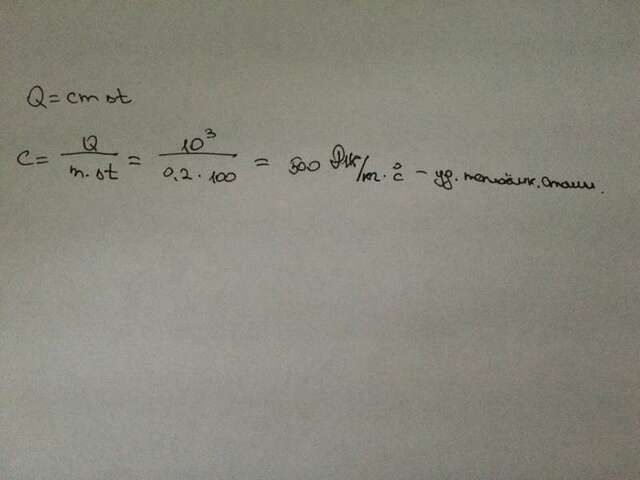 Q = cm Δt
C = Q / m · Δt = 10³ / 0,2 · 100 = 500 Дж/кг · °C – уд. теплоёмк. стали.